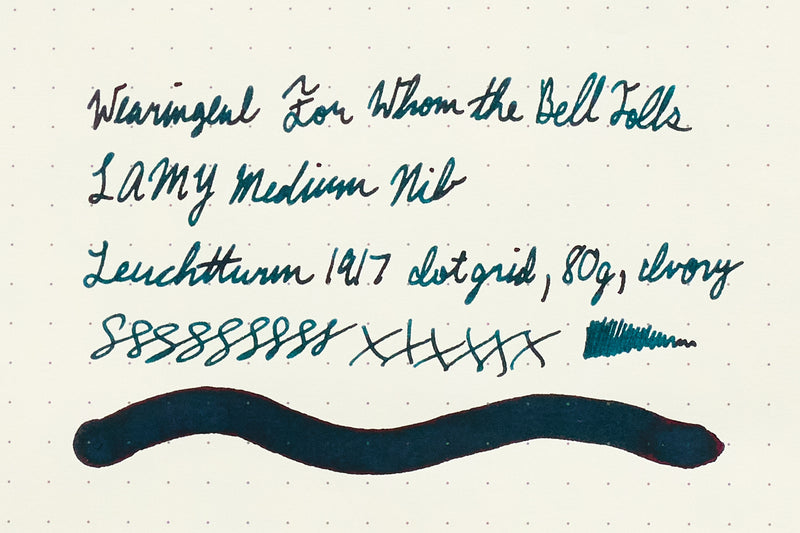 Wearingeul For Whom the Bell Tolls
LAMY Medium Nib
Leuchtturm 1917 dot grid, 80g, ivory